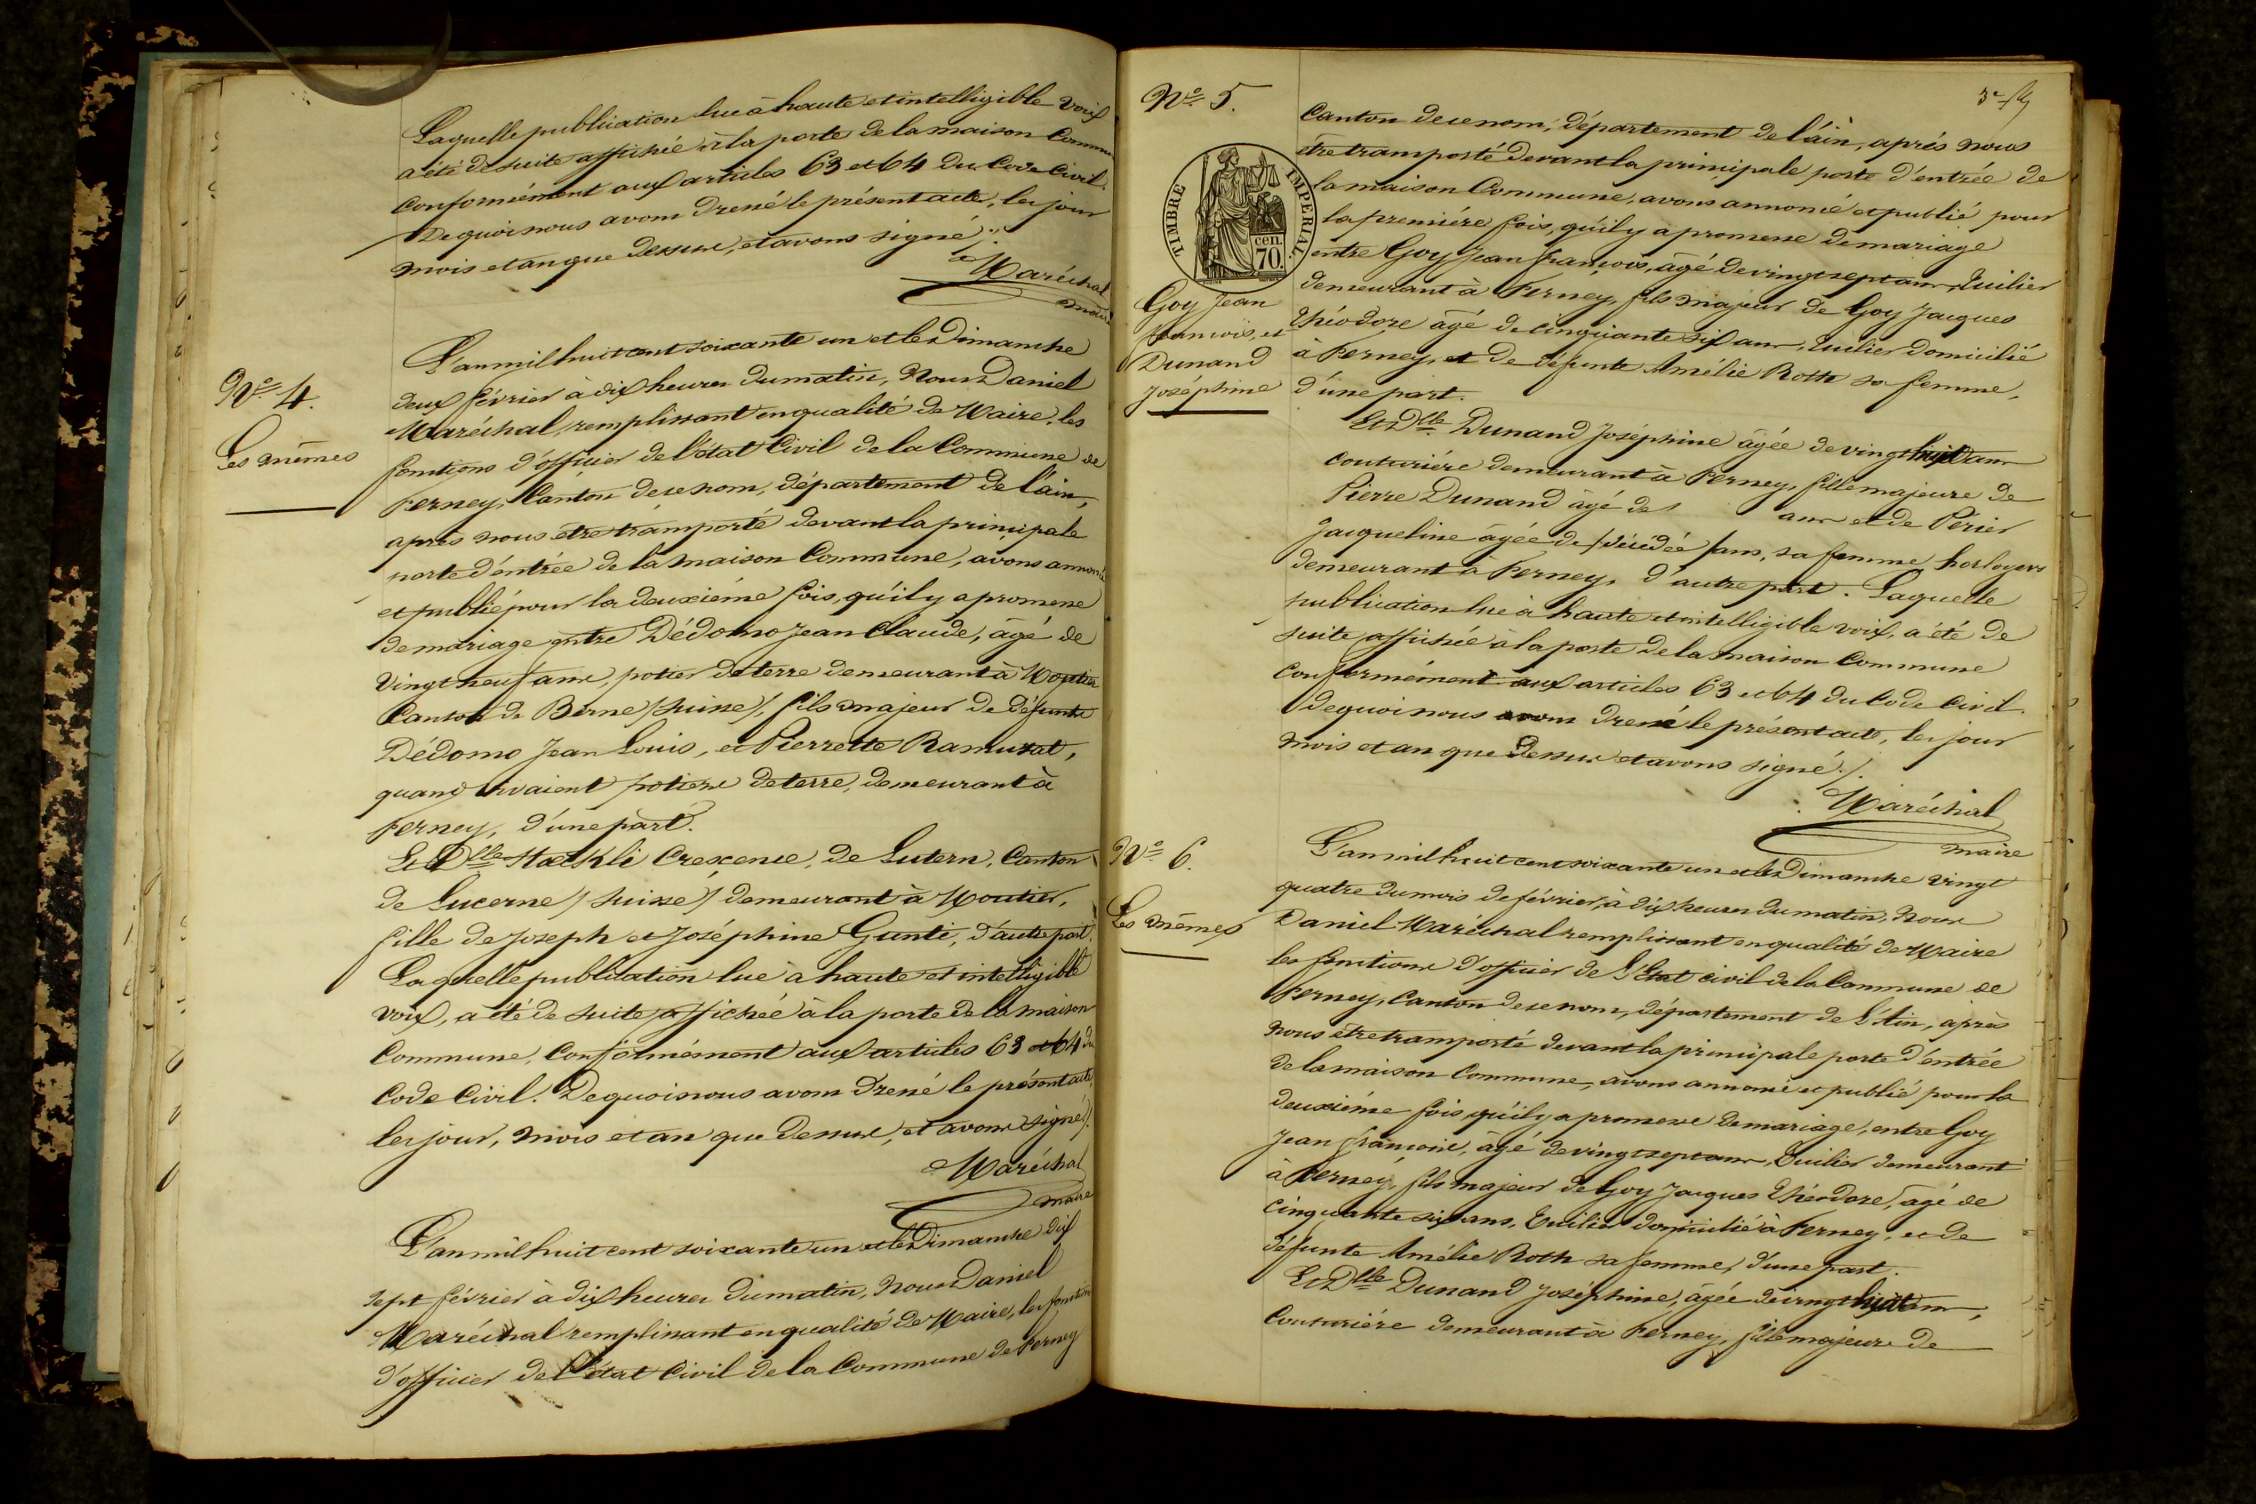 Laquelle publication lue à haute et intelligible voix
a été de suite affichée à la porte de la maison Commune
conformément aux articles 63 et 64 du Code Civil.
De quoi nous avons dressé le présent acte, les jour
mois et an que dessus, et avons signé ./.
Maréchal
maire
N° 4.
Les mêmes
L'an mil huit cent soixante un et le Dimanche
deux février à dix heures du matin, Nous Daniel
Maréchal, remplissant en qualité de Maire, les
fonctions d'officier de l'état Civil de la Commune de
Ferney, Canton de ce nom, département de l'ain,
après nous être transporté devant la principale
porte d'entrée de la maison Commune, avons annoncé
et publié pour la deuxième fois, qu'il y a promesse
de mariage entre Dédomo Jean Claude, âgé de
vingt neuf ans, potier de terre demeurant à Moutier
Canton de Berne (Suisse), fils majeur de défunts
Dédomo Jean Louis, et Pierrette Ramuzat,
quand vivaient potiers de terre, demeurant à
Ferney, d'une part.
Et Dlle Staekli Crescence, de Lutern, Canton
de Lucerne (Suisse) demeurant à Moutier,
fille de Joseph et Joséphine Gunti, d'autre part.
Laquelle publication lue à haute et intelligible
voix, a été de suite affichée à la porte de la maison
Commune, conformément aux articles 63 et 64 du
Code Civil. De quoi nous avons dressé le présent acte,
les jour, mois et an que dessus, et avons signé ./.
Maréchal
maire
L'an mil huit cent soixante un et le Dimanche dix
sept février à dix heures du matin, Nous Daniel
Maréchal remplissant en qualité de Maire, les fonctions
d'officier de l'état Civil de la Commune de Ferney
N° 5.
TIMBRE IMPERIAL
cen.
70.
Goy Jean
François, et
Dunand
Joséphine
Canton de ce nom, département de l'ain, après nous
être transporté devant la principale porte d'entrée de
la maison Commune, avons annoncé et publié pour
la première fois, qu'il y a promesse de mariage
entre Goy Jean françois, âgé de vingt sept ans, tuilier
demeurant à Ferney, fils majeur de Goy Jacques
Théodore âgé de cinquante six ans, tuilier domicilié
à Ferney, et de défunte Amélie Roth sa femme,
d'une part.
Et Dlle Dunand Joséphine âgée de vingt huit ans
couturière demeurant à Ferney, fille majeure de
Pierre Dunand âgé de ans et de Périer
Jacqueline âgée de (décédée) ans, sa femme horlogers
demeurant à Ferney, d'autre part. Laquelle
publication lue à haute et intelligible voix, a été de
suite affichée à la porte de la maison Commune
conformément aux articles 63 et 64 du Code Civil.
De quoi nous avons dressé le présent acte, les jour
mois et an que dessus et avons signé ./.
Maréchal
maire
N° 6.
Les mêmes
L'an mil huit cent soixante un et le Dimanche vingt
quatre du mois de février, à dix heures du matin, Nous
Daniel Maréchal remplissant en qualité de Maire
les fonctions d'officier de l'Etat civil de la Commune de
Ferney, Canton de ce nom, département de l'Ain, après
nous être transporté devant la principale porte d'entrée
de la maison Commune, avons annoncé et publié pour la
deuxième fois, qu'il y a promesse de mariage, entre Goy
Jean françois, âgé de vingt sept ans, tuilier demeurant
à Ferney, fils majeur de Goy Jacques Théodore, âgé de
cinquante six ans, tuilier domicilié à Ferney, et de
défunte Amélie Roth sa femme, d'une part.
Et Dlle Dunand Joséphine, âgée de vingt huit ans,
couturière demeurant à Ferney, fille majeure de